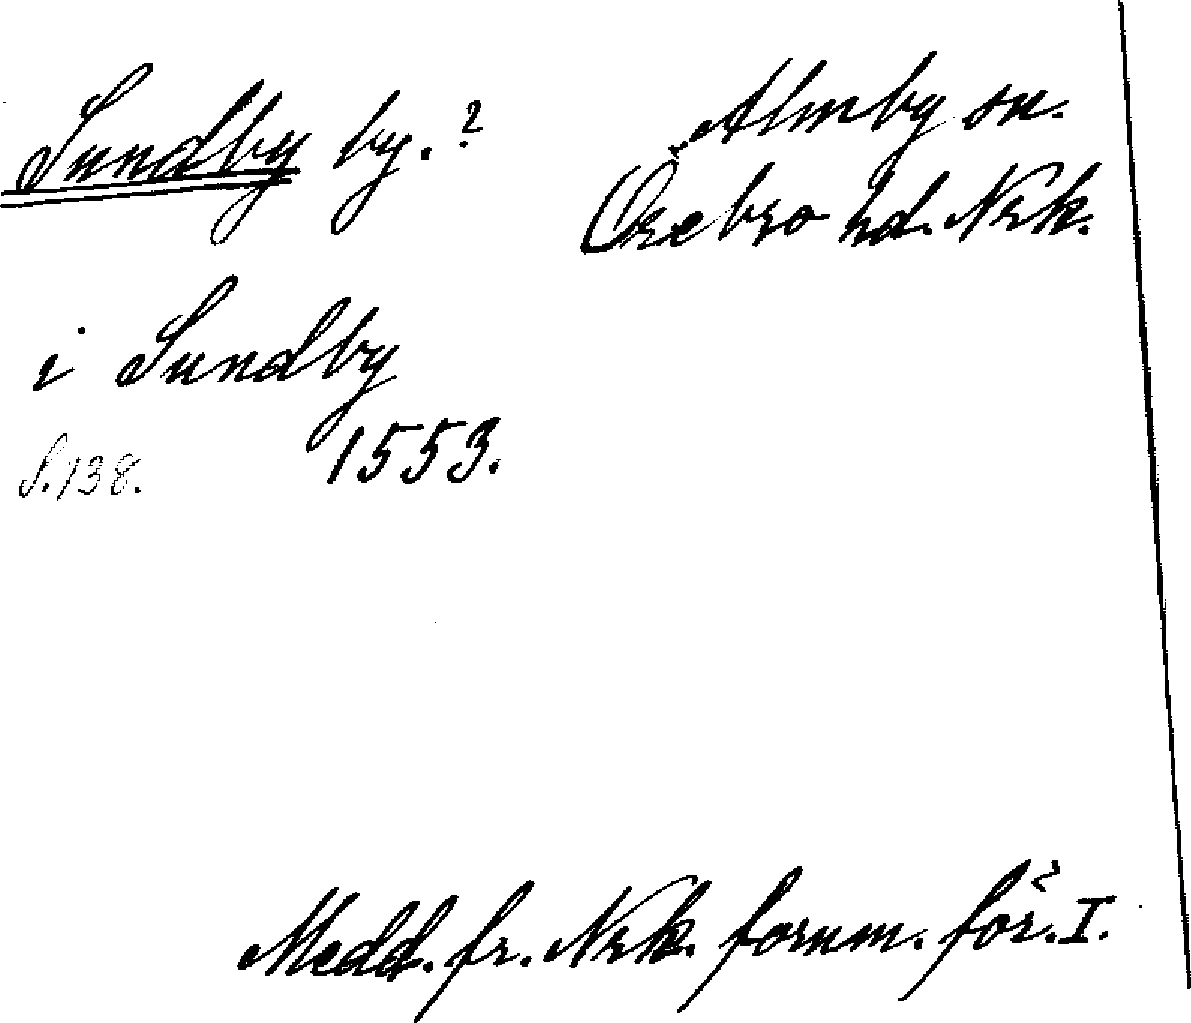 Sundby by.?
Almby sn.
Örebro hd. Nrk.
i Sundby
S. 138.
1553.
Medd. fr. Nrk. fornm. för. I.